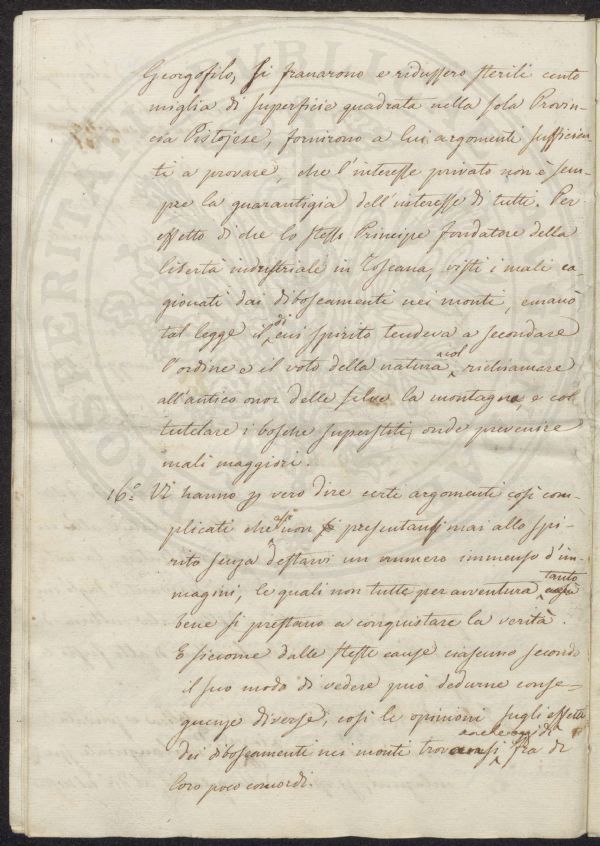 Georgofilo, si franarono e ridussero sterili cento
miglia di superficie quadrata nella sola Provin-
cia Pistojese, fornirono a lui argomenti sufficien
ti a provare, che l'interesse privato non è sem-
pre la guarantigia dell'interesse di tutti. Per
effetto di che lo stesso Principe fondatore della
libertà industriale in Toscana, visti i mali ca-
gionati dai diboscamenti nei monti, emanò
tal legge il di cui spirito tendeva a secondare
l'ordine e il voto della natura col richiamare
all'antico onor delle selve la montagna, e col
tutelare i boschi superstiti, onde prevenire
mali maggiori.
16.° Vi hanno p vero dire certi argomenti così com-
plicati che non si presentano mai allo spi-
rito senza destarvi un numero immenso d'im-
magini, le quali non tutte per avventura tanto
bene si prestano a conquistare la verità.
E siccome dalle stesse cause ciascuno secondo
il suo modo di vedere può dedurne conse-
guenze diverse, così le opinioni sugli effetti
dei diboscamenti nei monti trovansi anche oggidì fra di
loro poco concordi.